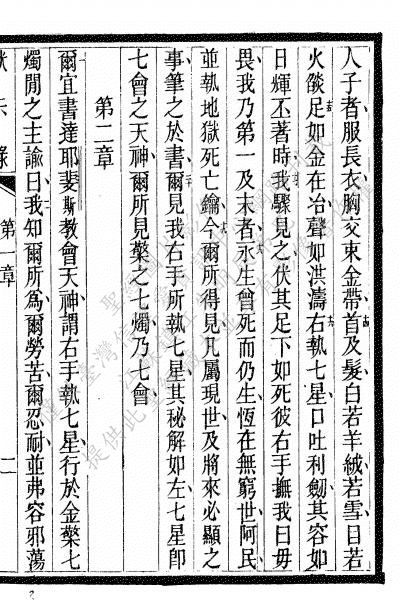 人子者服長衣胸交束金帶首及髮白若羊絨若雪目若
火燄足如金在冶聲如洪濤右執七星口吐利劒其容如
日輝丕著時我驟見之伏其足下如死彼右手撫我曰毋
畏我乃第一及末者永生曾死而仍生恆在無窮世阿民
並執地獄死亡鑰今爾所得見凡屬現世及將來必顯之
事筆之於書爾見我右手所執七星其秘解如左七星卽
七會之天神爾所見檠之七燭乃七會
第二章
爾宜書達耶斐斯教會天神謂右手執七星行於金檠七
燭閒之主諭曰我知爾所為爾勞苦爾忍耐並弗容邪蕩
默示錄
第一章
二